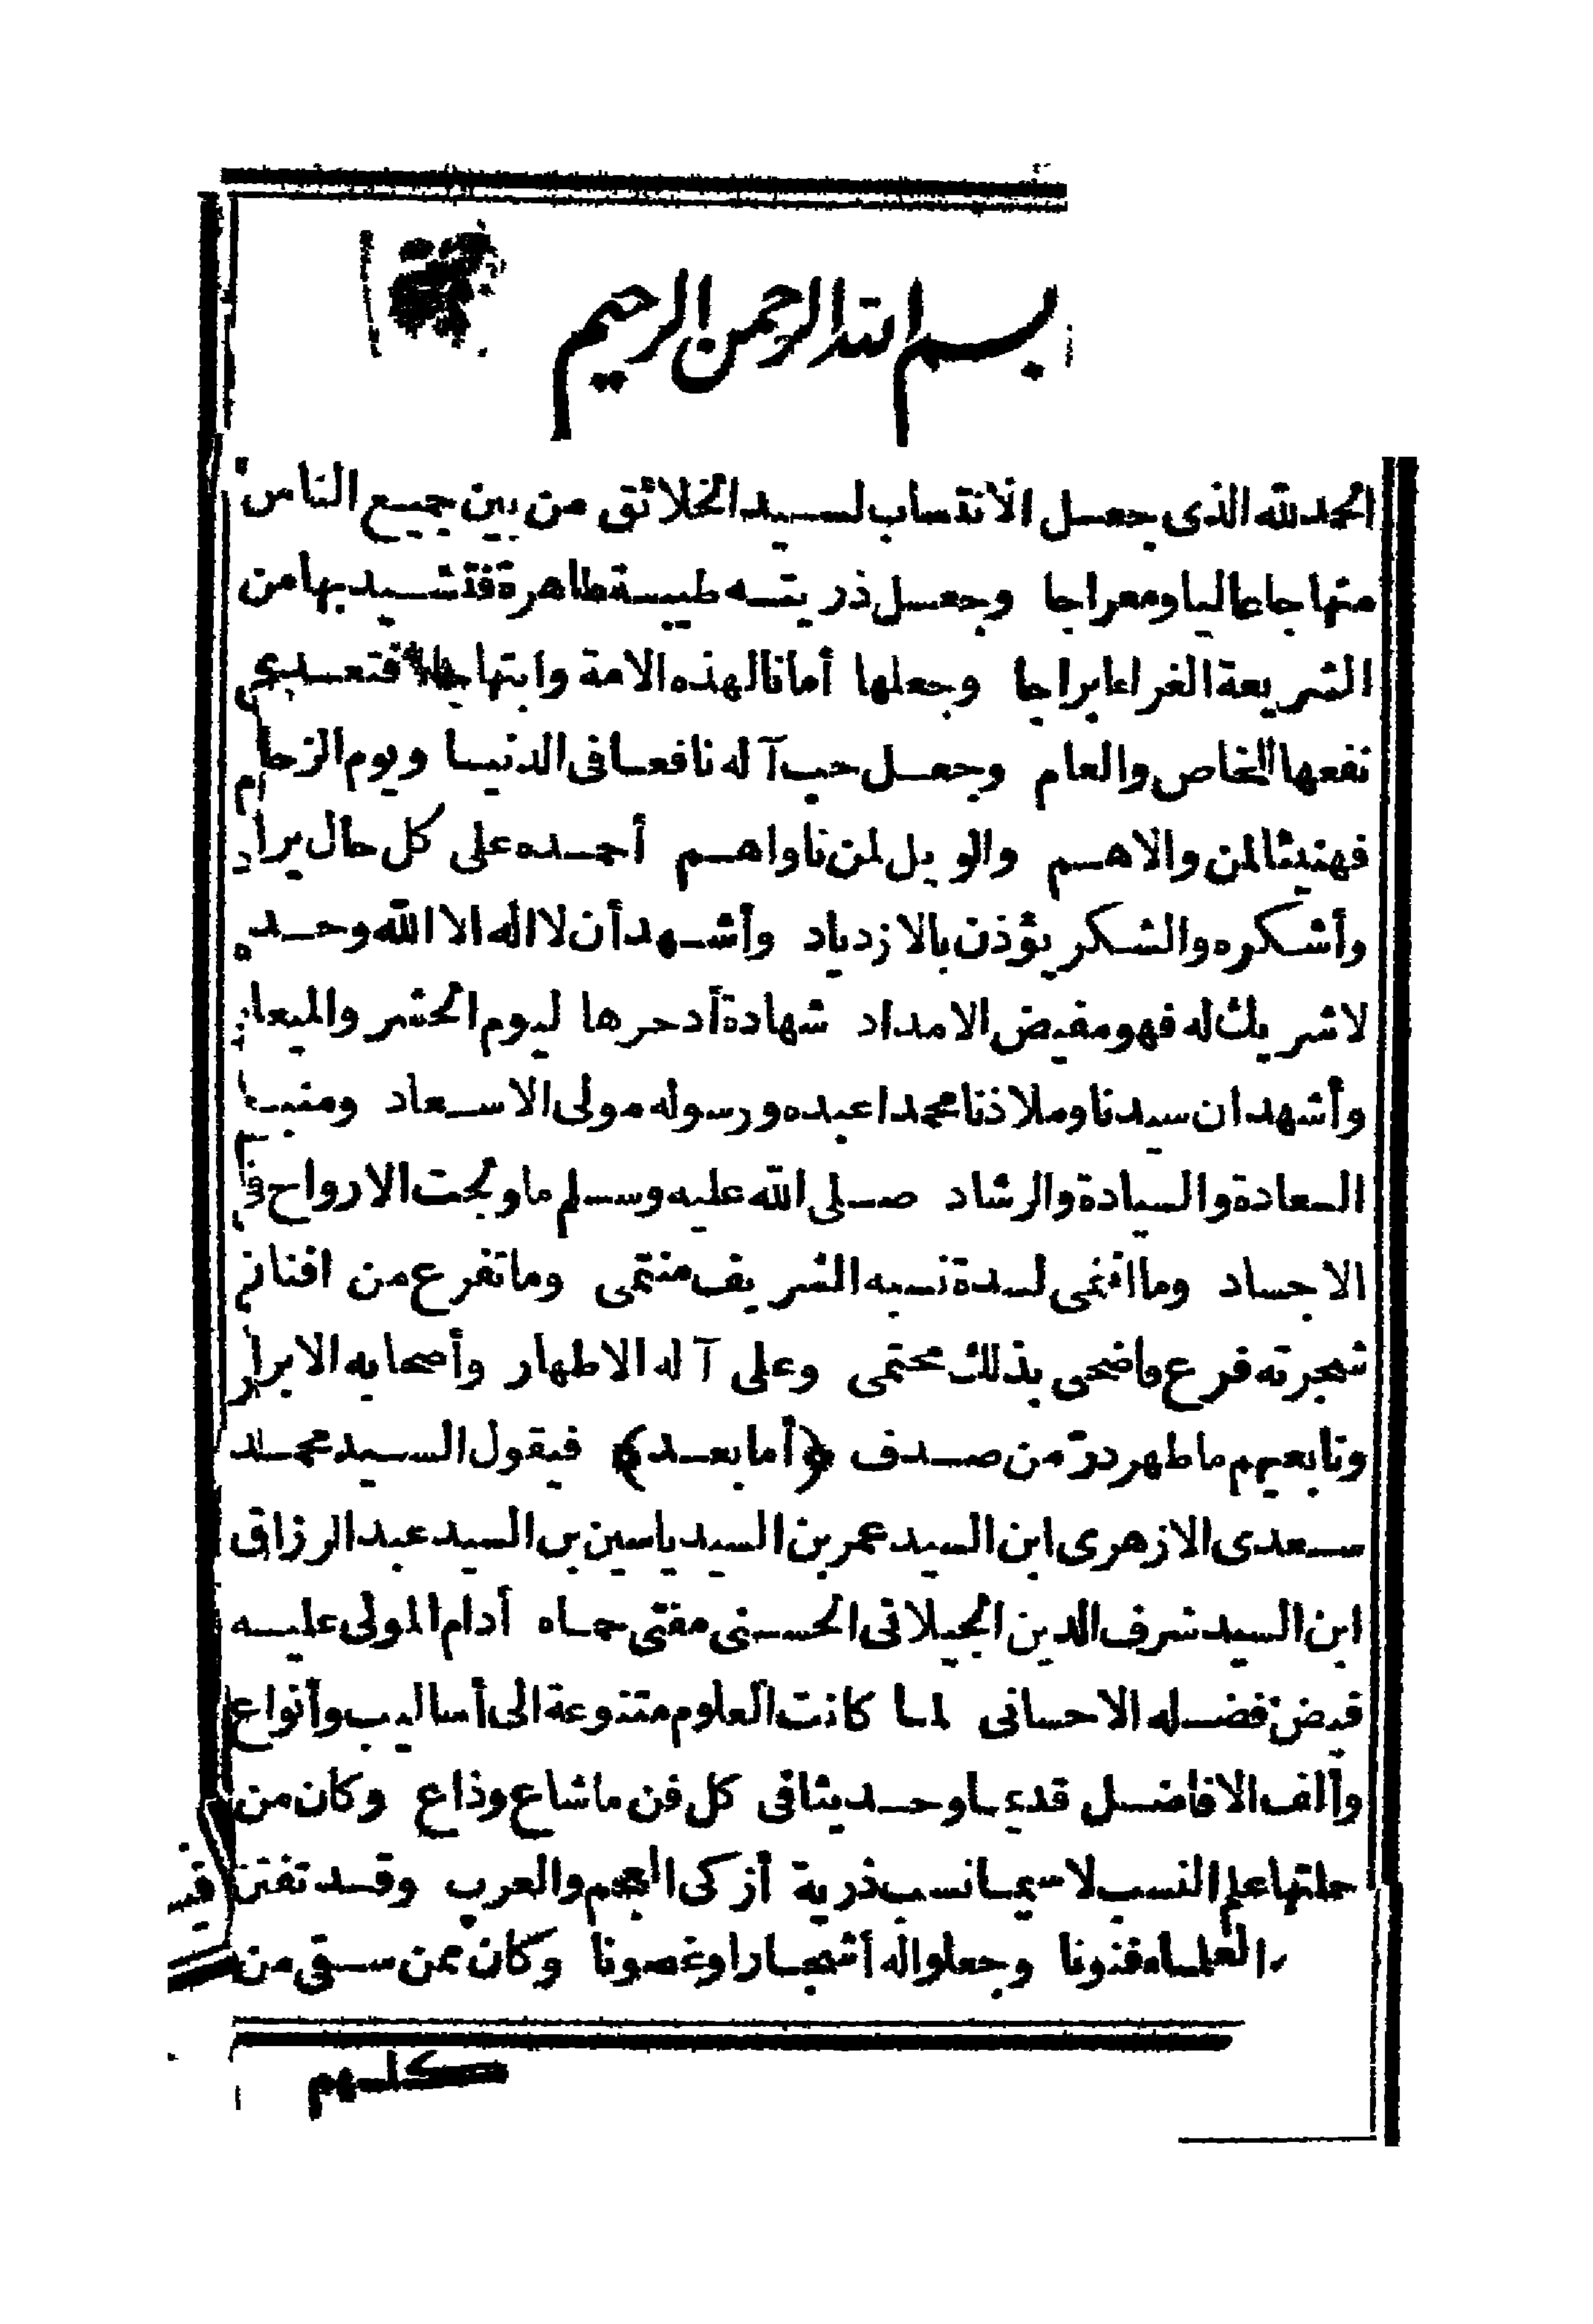 بسم الله الرحمن الرحيم
الحمد لله الذى جعل الانتساب لسيد الخلائق من بين جميع الناس
منهاجا عاليا ومعراجا وجعل ذريته طيبة طاهرة فتشيد بها من
الشريعة الغراء ابراجا وجعلها أمانا لهذه الامة وابتهاجا فتعدى
نفعها للخاص والعام وجعل حب آله نافعا فى الدنيا ويوم الزحام
فهنيئا لمن والاهم والويل لمن ناواهم أحمده على كل حال يراد
وأشكره والشكر يؤذن بالازدياد وأشهد أن لا اله الا الله وحده
لا شريك له فهو مفيض الامداد شهادة أدخرها ليوم الحشر والميعاد
وأشهد ان سيدنا وملاذنا محمدا عبده ورسوله مولى الاسعاد ومنبع
السعادة والسيادة والرشاد صلى الله عليه وسلم ما ولجت الارواح فى
الاجساد وما انتمى لسدة نسبه الشريف منتمى وما تفرع من افنان
شجرته فرع فاضحى بذلك محتمى وعلى آله الاطهار وأصحابه الابرار
وتابعيهم ما طهر در من صدف ﴿أما بعد﴾ فيقول السيد محمد
سعدى الازهرى ابن السيد عمر بن السيد ياسين بن السيد عبد الرزاق
ابن السيد شرف الدين الجيلانى الحسنى مفتى حماه أدام المولى عليه
فيض فضله الاحسانى لما كانت العلوم متنوعة الى أساليب وأنواع
وألف الافاضل قديما وحديثا فى كل فن ما شاع وذاع وكان من
جملتها علم النسب لا سيما نسب ذرية أزكى العجم والعرب وقد تفنن فيه
العلماء فنونا وجعلوا له أشجارا وغصونا وكان ممن سبق من
كلهم